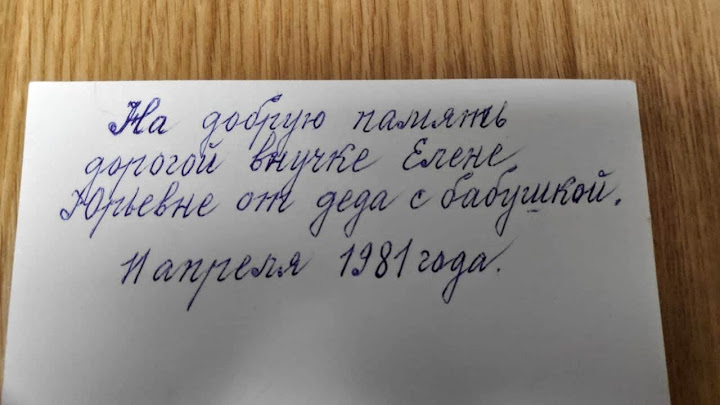 На добрую память
дорогой внучке Елене
Юрьевне от деда с бабушкой.
11 апреля 1981 года.